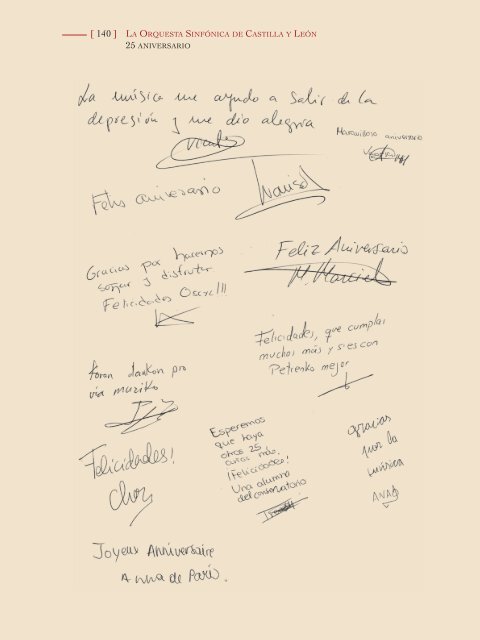 [ 140 ] La Orquesta Sinfónica de Castilla y León
25 aniversario
La música me ayudo a salir de la
depresión y me dio alegria
Maravilloso aniversario
Feliz aniversario
Marisol
Gracias por hacernos
soñar y disfrutar
Felicidades Oscyl!!!
Feliz Aniversario
M. Marciel
Felicidades, que cumplas
muchos más y si es con
Petrenko mejor
Koran dankon pro
via muziko
Felicidades!
Esperemos
que haya
otros 25
años más.
¡Felicidades!
Una alumna
del conservatorio
gracias
por la
música
ANA
Joyeux Anniversaire
Anna de Paris.